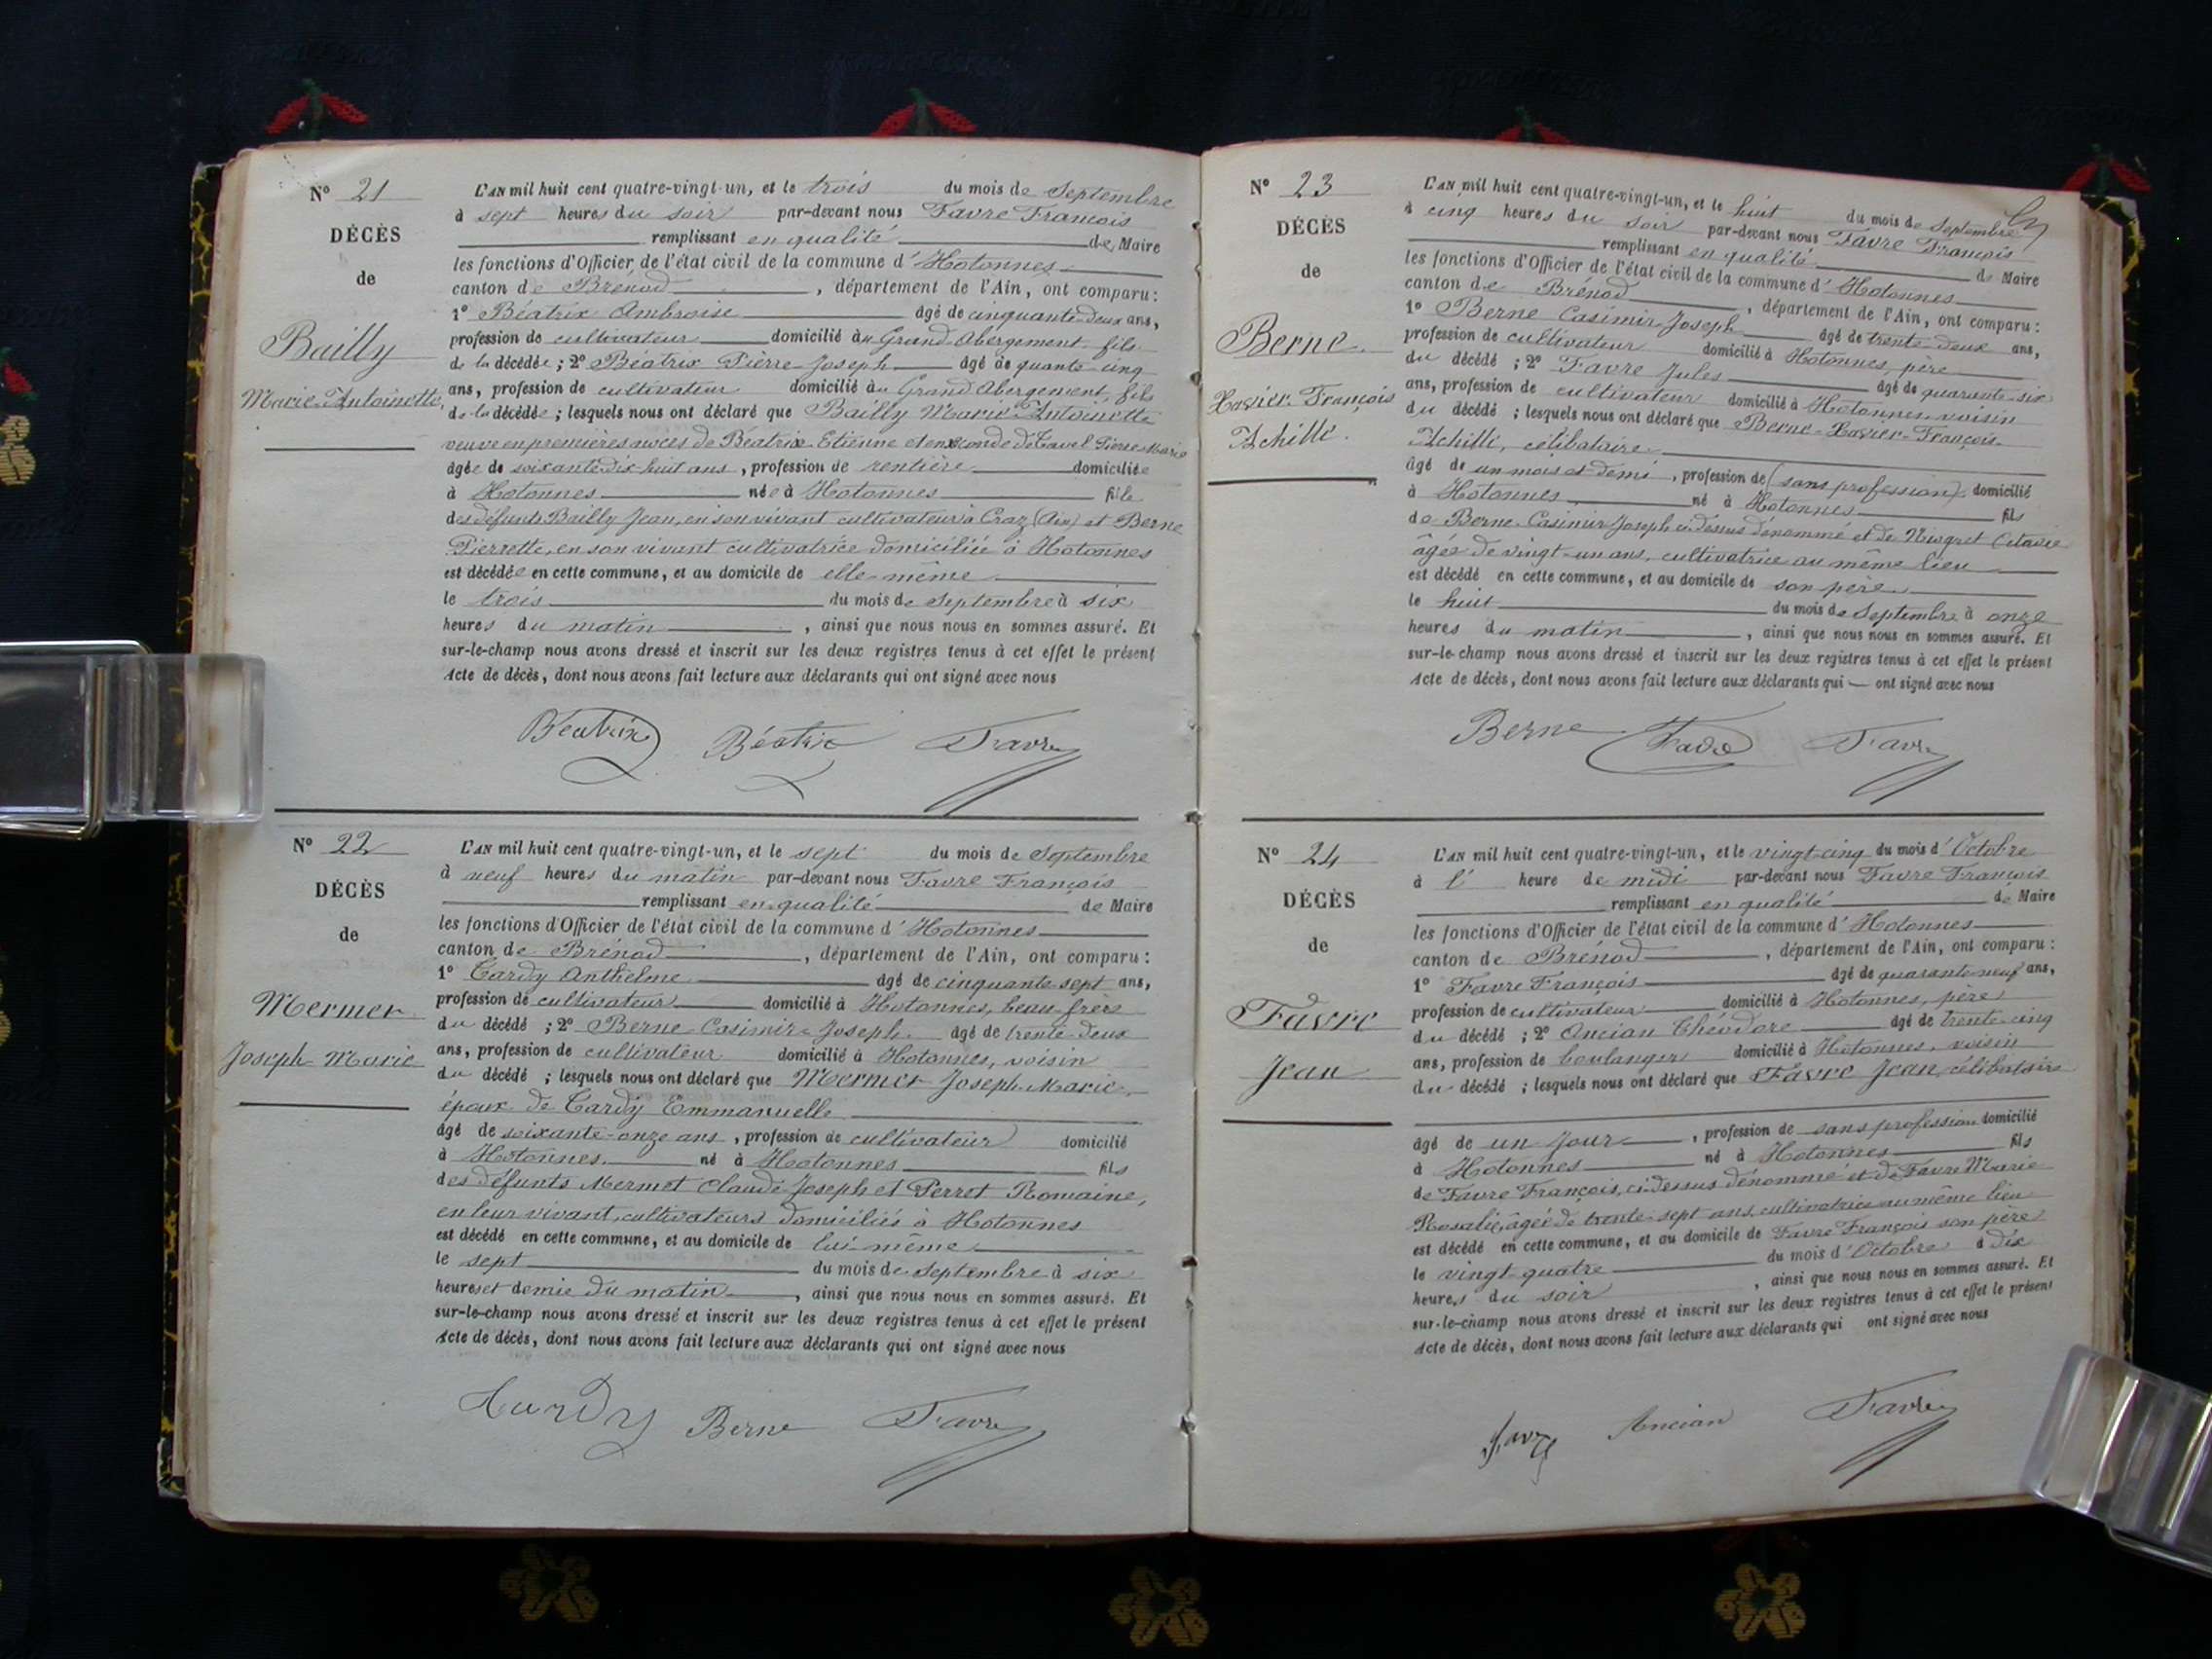 N° 21
DÉCÈS
de
Bailly
Marie-Antoinette
L'AN mil huit cent quatre-vingt-un, et le trois du mois de Septembre
à sept heures du soir par-devant nous Favre François
remplissant en qualité de Maire
les fonctions d'Officier de l'état civil de la commune d'Hotonnes
canton de Brénod, département de l'Ain, ont comparu :
1° Béatrix Ambroise âgé de cinquante-deux ans,
profession de cultivateur domicilié au Grand Abergement, fils
de la décédée ; 2° Béatrix Pierre Joseph âgé de quarante cinq
ans, profession de cultivateur domicilié au Grand Abergement, fils
de la décédée ; lesquels nous ont déclaré que Bailly Marie-Antoinette
veuve en premières noces de Béatrix Etienne et en seconde de Pierre Marie
âgée de soixante-dix-huit ans, profession de rentière domiciliée
à Hotonnes née à Hotonnes fille
des défunts Bailly Jean, en son vivant cultivateur à Craz (Ain) et Berne
Pierrette, en son vivant cultivatrice domiciliée à Hotonnes
est décédée en cette commune, et au domicile de elle-même
le trois du mois de Septembre à six
heures du matin, ainsi que nous nous en sommes assuré. Et
sur-le-champ nous avons dressé et inscrit sur les deux registres tenus à cet effet le présent
Acte de décès, dont nous avons fait lecture aux déclarants qui ont signé avec nous
Béatrix Béatrix Favre
N° 22
DÉCÈS
de
Mermet
Joseph Marie
L'AN mil huit cent quatre-vingt-un, et le sept du mois de Septembre
à neuf heures du matin par-devant nous Favre François
remplissant en qualité de Maire
les fonctions d'Officier de l'état civil de la commune d'Hotonnes
canton de Brénod, département de l'Ain, ont comparu :
1° Tardy Anthelme âgé de cinquante-sept ans,
profession de cultivateur domicilié à Hotonnes, beau-frère
du décédé ; 2° Berne Casimir Joseph âgé de trente-deux
ans, profession de cultivateur domicilié à Hotonnes, voisin
du décédé ; lesquels nous ont déclaré que Mermet Joseph Marie,
époux de Tardy Emmanuelle
âgé de soixante-onze ans, profession de cultivateur domicilié
à Hotonnes né à Hotonnes fils
des défunts Mermet Claude Joseph et Perret Romaine,
en leur vivant, cultivateurs domiciliés à Hotonnes
est décédé en cette commune, et au domicile de lui-même
le sept du mois de Septembre à six
heures et demie du matin, ainsi que nous nous en sommes assuré. Et
sur-le-champ nous avons dressé et inscrit sur les deux registres tenus à cet effet le présent
Acte de décès, dont nous avons fait lecture aux déclarants qui ont signé avec nous
Tardy Berne Favre
N° 23
DÉCÈS
de
Berne
Xavier-François
Achille.
L'AN mil huit cent quatre-vingt-un, et le huit du mois de Septembre
à cinq heures du soir par-devant nous Favre François
remplissant en qualité de Maire
les fonctions d'Officier de l'état civil de la commune d'Hotonnes
canton de Brénod, département de l'Ain, ont comparu :
1° Berne Casimir Joseph âgé de trente-deux ans,
profession de cultivateur domicilié à Hotonnes, père
du décédé ; 2° Favre Jules âgé de quarante-six
ans, profession de cultivateur domicilié à Hotonnes, voisin
du décédé ; lesquels nous ont déclaré que Berne-Xavier-François-
Achille, célibataire
âgé de un mois et demi, profession de (sans profession) domicilié
à Hotonnes né à Hotonnes fils
de Berne Casimir Joseph ci-dessus dénommé et de Octavie
âgée de vingt-un ans, cultivatrice au même lieu
est décédé en cette commune, et au domicile de son père
le huit du mois de Septembre à onze
heures du matin, ainsi que nous nous en sommes assuré. Et
sur-le-champ nous avons dressé et inscrit sur les deux registres tenus à cet effet le présent
Acte de décès, dont nous avons fait lecture aux déclarants qui ont signé avec nous
Berne Favre Favre
N° 24
DÉCÈS
de
Favre
Jean
L'AN mil huit cent quatre-vingt-un, et le vingt-cinq du mois d'Octobre
à l' heure de midi par-devant nous Favre François
remplissant en qualité de Maire
les fonctions d'Officier de l'état civil de la commune d'Hotonnes
canton de Brénod, département de l'Ain, ont comparu :
1° Favre François âgé de quarante-neuf ans,
profession de cultivateur domicilié à Hotonnes, père
du décédé ; 2° Ancian Théodore âgé de trente-cinq
ans, profession de boulanger domicilié à Hotonnes, voisin
du décédé ; lesquels nous ont déclaré que Favre Jean, célibataire
âgé de un jour, profession de sans profession domicilié
à Hotonnes né à Hotonnes fils
de Favre François, ci-dessus dénommé et de Favre Marie
Rosalie, âgée de trente-sept ans, cultivatrice au même lieu
est décédé en cette commune, et au domicile de Favre François son père
le vingt-quatre du mois d'Octobre à dix
heures du soir, ainsi que nous nous en sommes assuré. Et
sur-le-champ nous avons dressé et inscrit sur les deux registres tenus à cet effet le présent
Acte de décès, dont nous avons fait lecture aux déclarants qui ont signé avec nous
Favre Ancian Favre